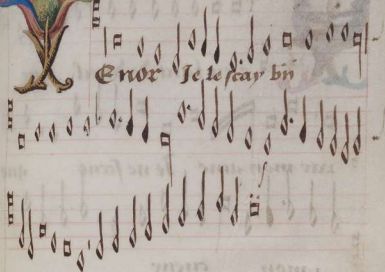 Tenor Je le scay bn